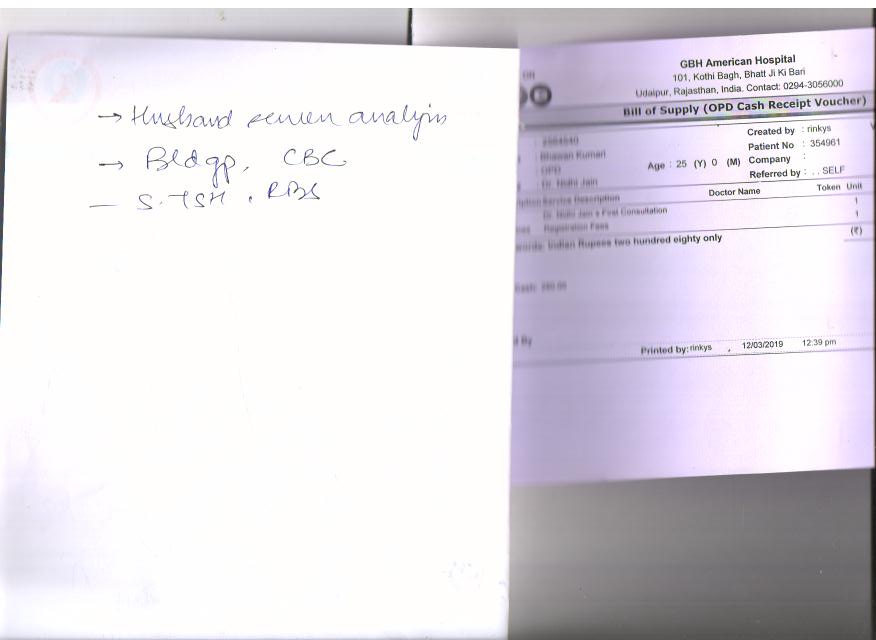 → Husband semen analysis
→ Bldgp, CBC
— S. TSH, RBS
GBH American Hospital
101, Kothi Bagh, Bhatt Ji Ki Bari
Udaipur, Rajasthan, India. Contact: 0294-3056000
Bill of Supply (OPD Cash Receipt Voucher)
Created by : rinkys
: Bhawan Kumari Patient No : 354961
: OPD Age : 25 (Y) 0 (M) Company :
: Dr. Nidhi Jain Referred by : . . SELF
Service Description Doctor Name Token Unit
Dr. Nidhi Jain's First Consultation 1
Registration Fees 1
words: Indian Rupees two hundred eighty only (₹)
Cash: 280.00
d By
Printed by: rinkys , 12/03/2019 12:39 pm